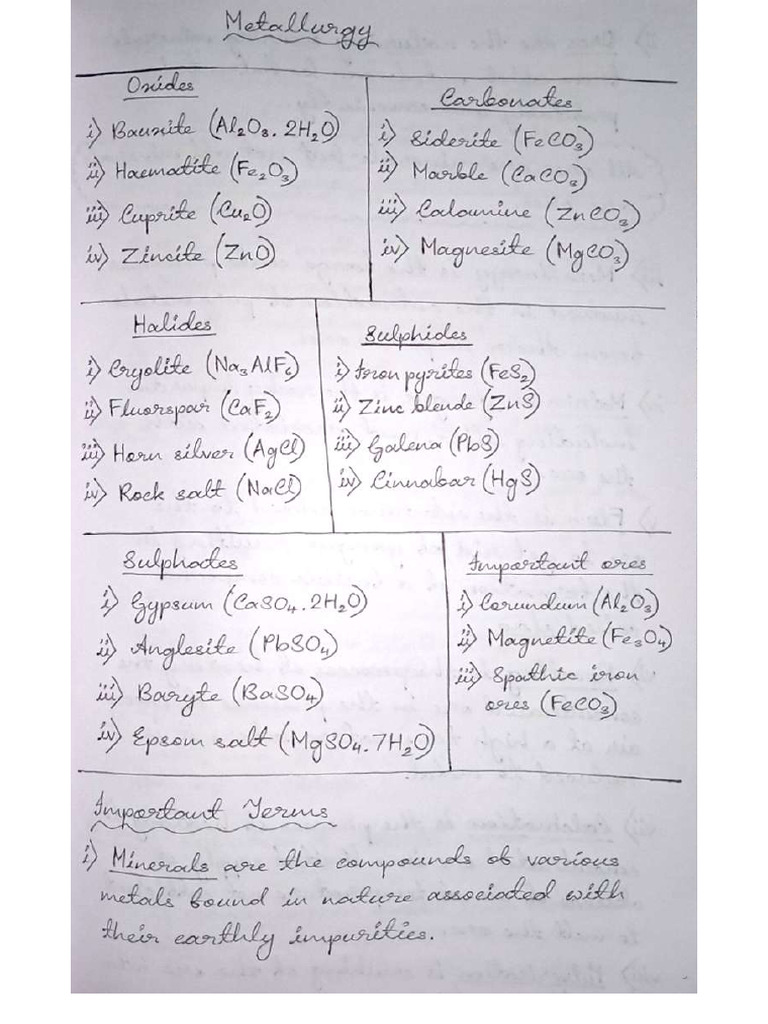 Metallurgy
Oxides
i) Bauxite (Al₂O₃. 2H₂O)
ii) Haematite (Fe₂O₃)
iii) Cuprite (Cu₂O)
iv) Zincite (ZnO)
Carbonates
i) Siderite (FeCO₃)
ii) Marble (CaCO₃)
iii) Calamine (ZnCO₃)
iv) Magnesite (MgCO₃)
Halides
i) Cryolite (Na₃AlF₆)
ii) Fluorspar (CaF₂)
iii) Horn silver (AgCl)
iv) Rock salt (NaCl)
Sulphides
i) Iron pyrites (FeS₂)
ii) Zinc blende (ZnS)
iii) Galena (PbS)
iv) Cinnabar (HgS)
Sulphates
i) Gypsum (CaSO₄.2H₂O)
ii) Anglesite (PbSO₄)
iii) Baryte (BaSO₄)
iv) Epsom salt (MgSO₄.7H₂O)
Important ores
i) Corundum (Al₂O₃)
ii) Magnetite (Fe₃O₄)
iii) Spathic iron
ores (FeCO₃)
Important Terms
i) Minerals are the compounds of various
metals found in nature associated with
their earthly impurities.